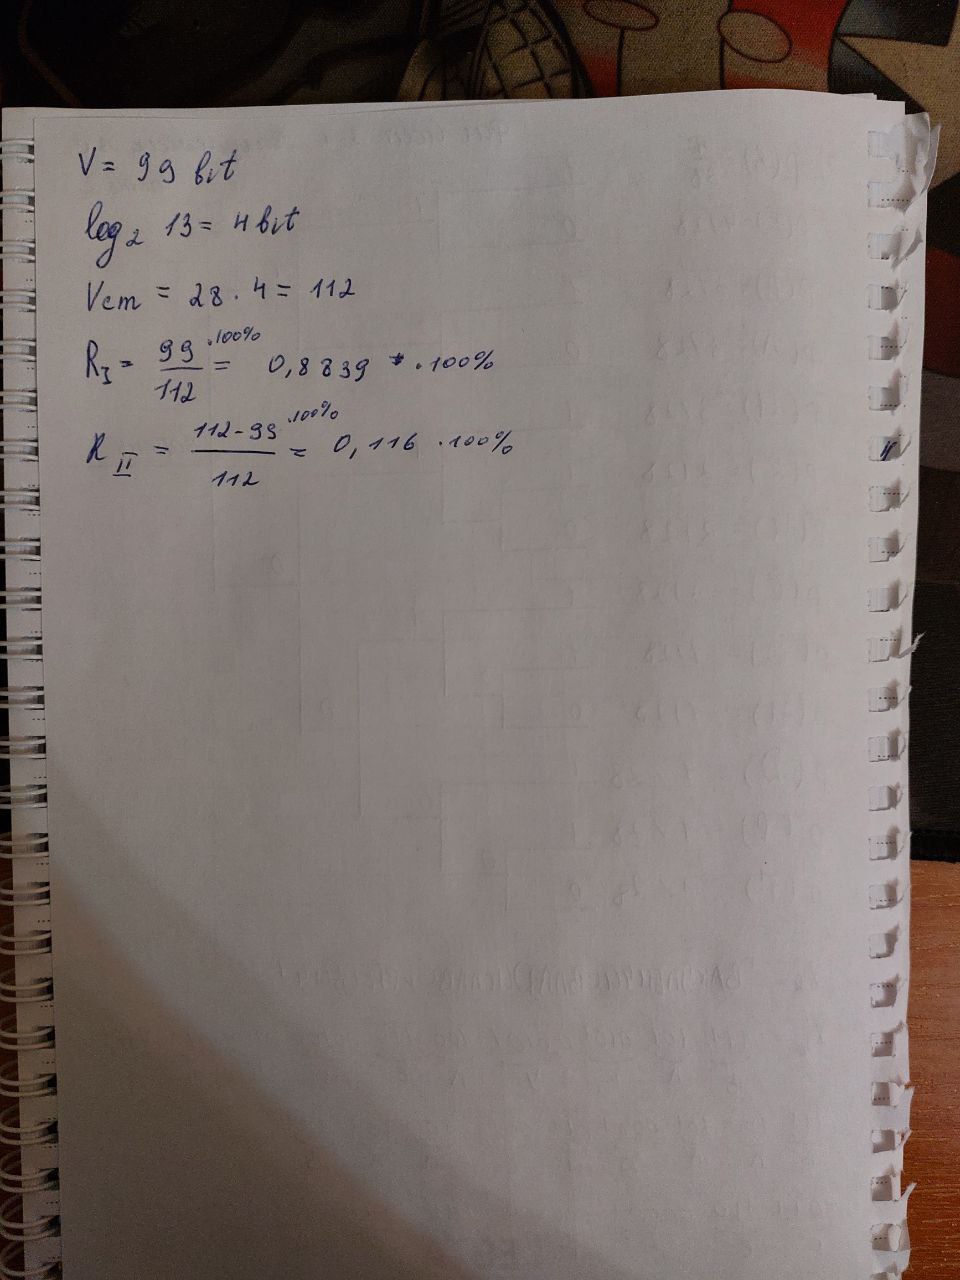 V = 99 bit
log₂ 13 = 4 bit
Vcm = 28 · 4 = 112
R₃ = 99/112 ·100% = 0,8839 · 100%
R II = 112-99/112 ·100% = 0,116 · 100%